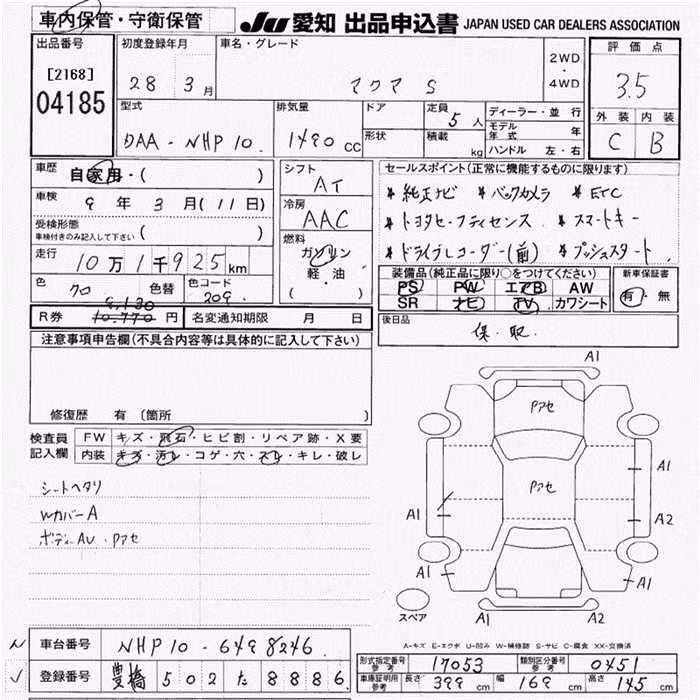 車内保管・守衛保管 JU 愛知 出品申込書 JAPAN USED CAR DEALERS ASSOCIATION
出品番号 [2168] 04185
初度登録年月 28 3月
車名・グレード アクア S
2WD・4WD
評価点 3.5
外装 内装
C B
型式 DAA-NHP10
排気量 1490 CC
ドア
形状
定員 5 人
積載 kg
ディーラー・並行
モデル年式 年
ハンドル 左・右
車歴 自家用・( )
車検 9年3月(11日)
受検形態
車検付きのみ記入して下さい ( )
走行 10万1千925km
色 クロ 色替 色コード 209
シフト AT
冷房 AAC
燃料 ガソリン
軽・油
( )
セールスポイント(正常に機能するものに限ります)
* 純正ナビ * バックカメラ * ETC
* トヨタセーフティセンス * スマートキー
* ドライブレコーダー(前) * プッシュスタート
装備品(純正品に限り○をつけてください)
PS PW エアB AW
SR ナビ TV カワシート
新車保証書
有・無
R券 9,130 10,770 円 名変通知期限 月 日
後日品 保.取.
注意事項申告欄(不具合内容等は具体的に記入して下さい)
修復歴 有 〔箇所 〕
検査員記入欄
FW キズ・飛石・ヒビ割・リペア跡・X要
内装 キズ・汚レ・コゲ・穴・スレ・キレ・破レ
シートヘタリ
WカバーA
ボディAU・Pアセ
A1
Pアセ
Pアセ
A1
A1
A2
A1
A1
スペア
A1 A2
A-キズ E-エクボ U-凹み W-補修跡 S-サビ C-腐食 XX-交換済
車台番号 NHP10-6498246
登録番号 豊橋 502 た 8886
形式指定番号 参考 17053 類別区分番号 参考 0451
車庫証明用 参考 長さ 399 cm 幅 169 cm 高さ 145 cm